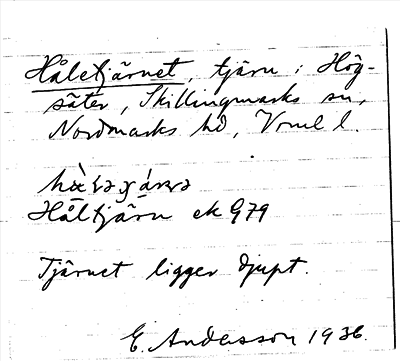 Håletjärnet, tjärn i Hög-
säter, Skillingmarks sn,
Nordmarks hd, Vrml l.
Håltjärn ek G79
Tjärnet ligger djupt.
E. Andersson 1936.